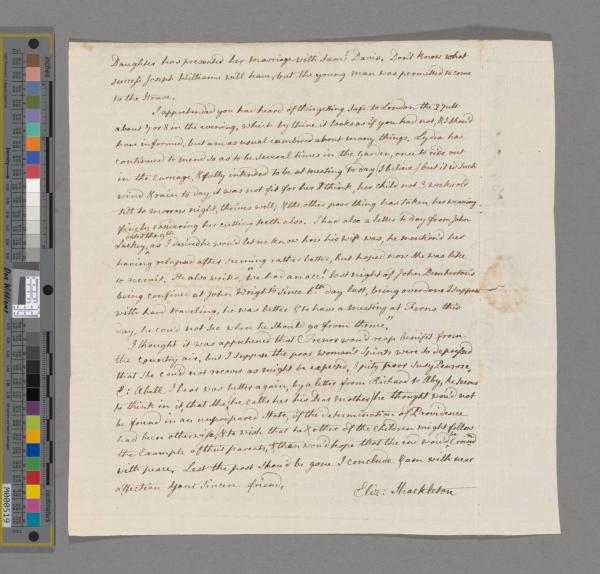 Daughter has prevented her marriage with Saml. Davis. Don't know what
success Joseph Williams will have, but the young man was permitted to come
to the House.
I apprehended you had heard of their getting safe to London the 27 ult:
about 7 or 8 in the evening, which by thine it looks as if you had not, & I should
have informed, but am as usual cumbered about many things. Lydia has
continued to mend so as to be several times in the Garden, once to ride out
in the Carriage, & fully intended to be at meeting to day I believe, but it is such
wind & rain to day it was not fit for her I think, her child not 3 weeks old
till to morrow night, thrives well, & the other poor thing has taken her weaning
finely considering her cutting teeth also. I had also a letter to day from John
dated the 9th
Lackey, as I desired he would let us know how his wife was, he mention'd her
having relapsed after seeming rather better, but hoped now she was like
to recruit. He also writes, "we had an acct. last night of John Pemberton's
being confined at John Wright's since 6th day last, being overdone I suppose
with hard traveling, he was better & to have a meeting at Ferns this
day, he could not see when he should go from thence."
I thought it was apprehended that C: Trenor would reap benefit from
the country air, but I suppose the poor woman's spirits were so depressed
that she could not recover as might be expected, I pity poor Susy Penrose,
E: Abell I hear was better again, by a letter from Richard to Aby, he seems
to think in it, that she, (he calls her his Dear Mother) he thought would not
be found in an unprepared State, if the determination of Providence
had been otherwise, & to wish that he & other of the children might follow
the Example of their parents, & than would hope that the end would be crown'd
with peace. Lest the post should be gone I conclude & am with near
affection your sincere friend,
Eliz: Shackleton
M000519
Don Williams
centimeters